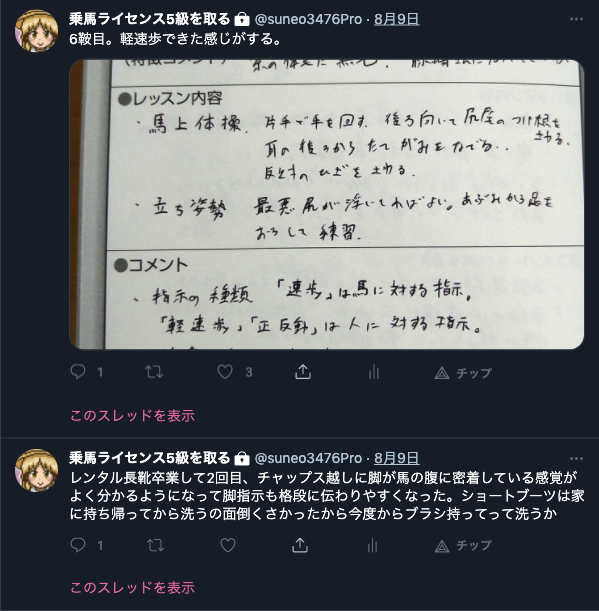 乗馬ライセンス5級を取る @suneo3476Pro · 8月9日
6鞍目。軽速歩できた感じがする。
●レッスン内容
・馬上体操 片手で手を回す 後ろ向いて尻尾のつけ根を
さわる。
耳の後ろからたてがみをなでる。
反対のひざをさわる。
・立ち姿勢 最悪尻が浮いてればよい。あぶみから足を
おろして練習。
●コメント
、指示の種類 「速歩」は馬に対する指示。
「軽速歩」「正反動」は人に対する指示。
1 3 チップ
このスレッドを表示
乗馬ライセンス5級を取る @suneo3476Pro · 8月9日
レンタル長靴卒業して2回目、チャップス越しに脚が馬の腹に密着している感覚が
よく分かるようになって脚指示も格段に伝わりやすくなった。ショートブーツは家
に持ち帰ってから洗うの面倒くさかったから今度からブラシ持ってって洗うか
1 チップ
このスレッドを表示